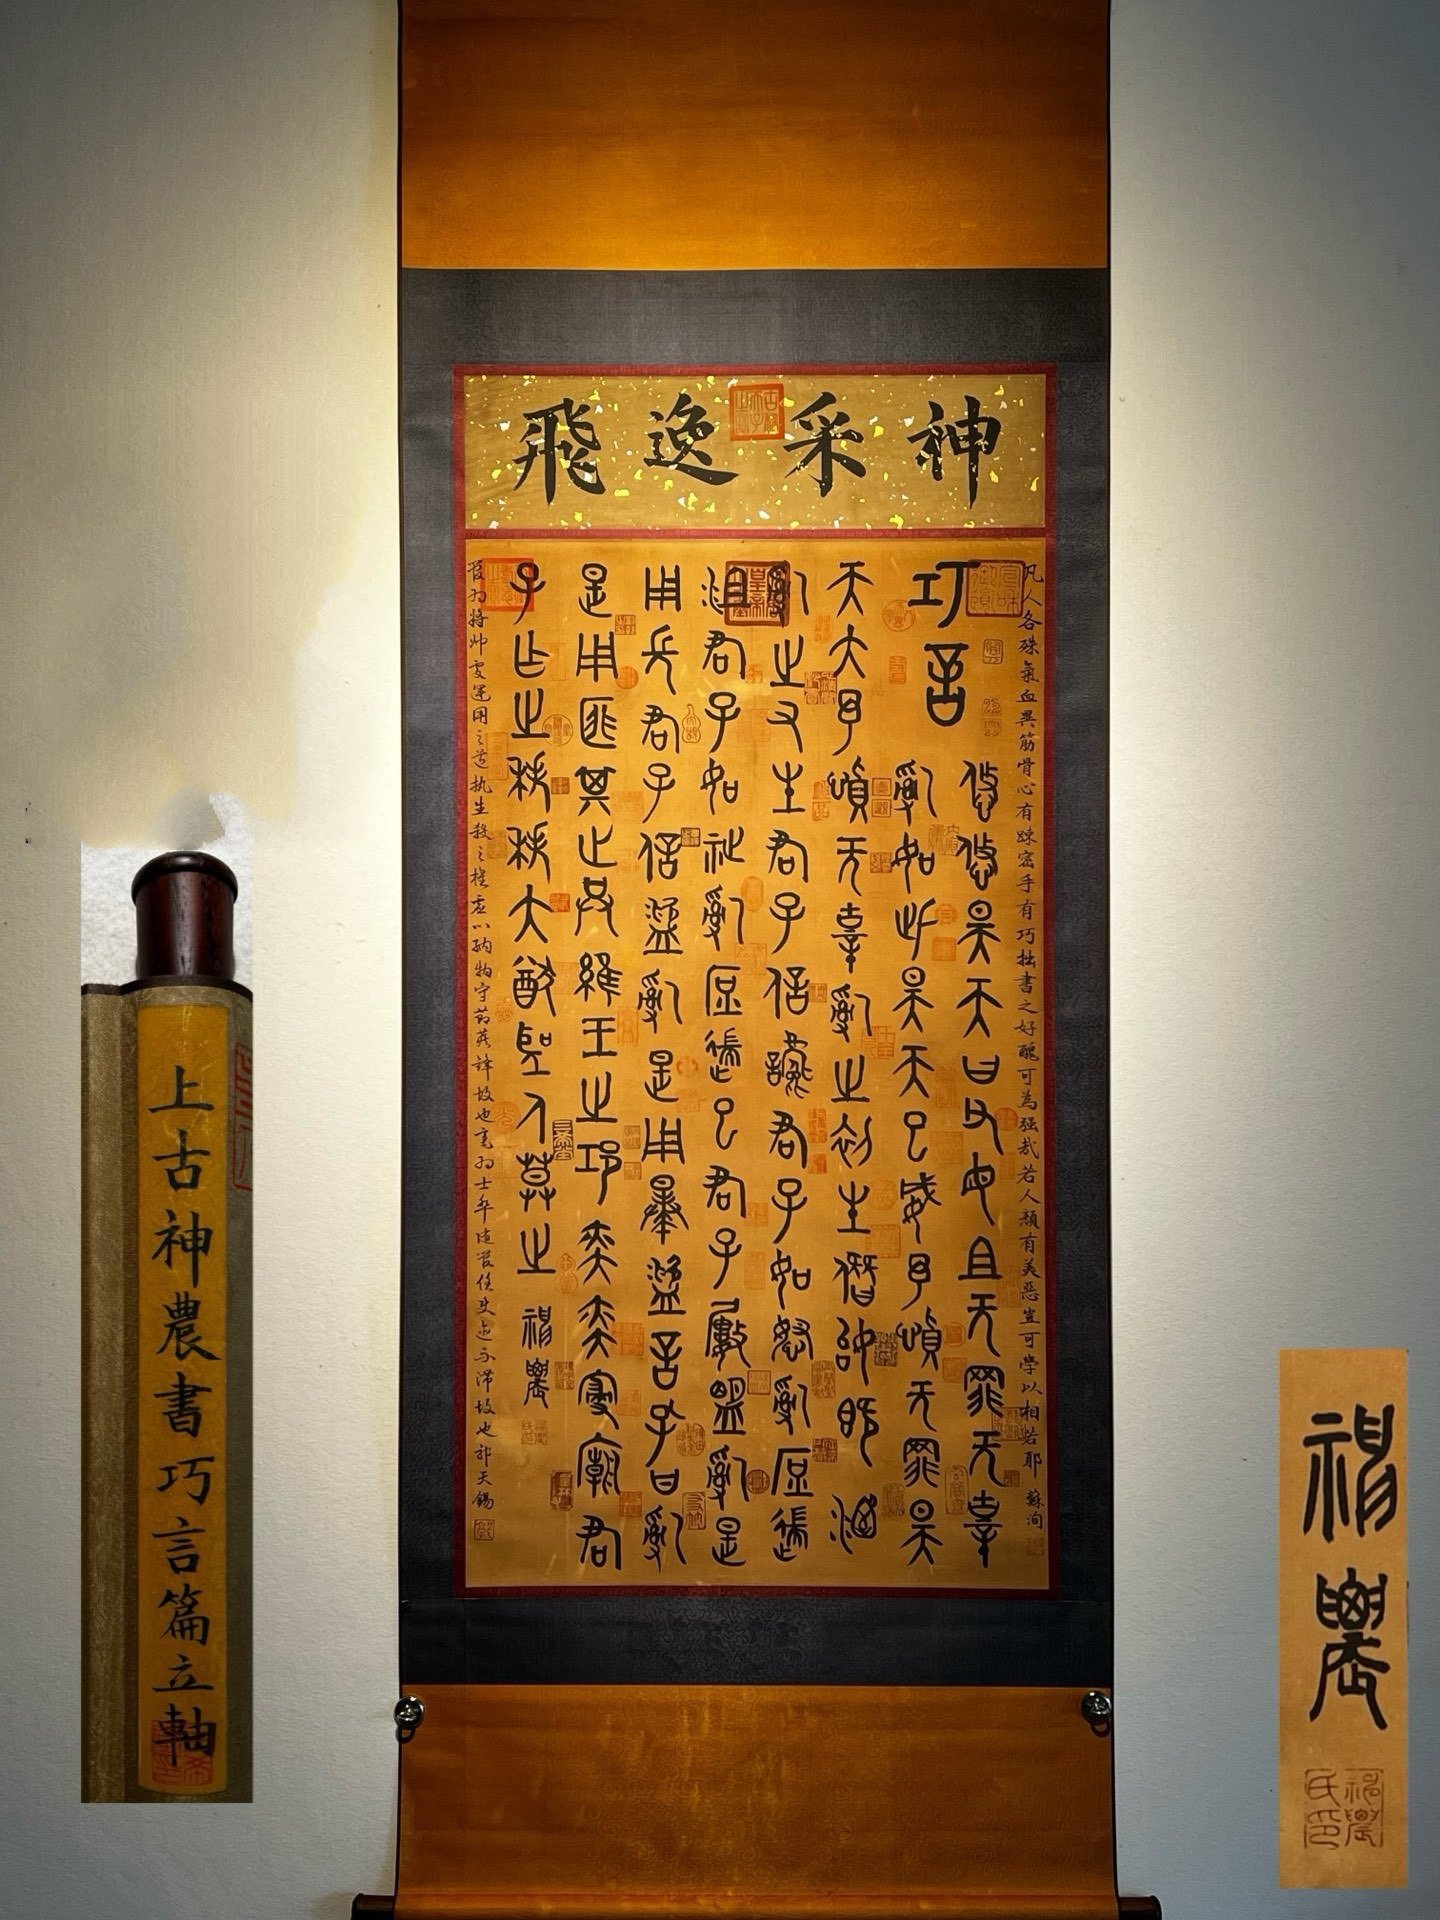 神采逸飛
凡人各殊氣血異筋骨心有疎密手有巧拙書之好醜可為强哉若人顏有美惡豈可學以相若耶 蘇洵
巧言
悠悠昊天曰父母且无罪无辜
亂如此昊天已威予慎无罪昊
天大予慎无辜亂之初生僭始既涵
亂之又生君子信讒君子如怒亂庶遄
沮君子如祉亂庶遄已君子屢盟亂是
用長君子信盜亂是用暴盜言孔甘亂
是用匪其止共維王之邛奕奕寢廟君
子作之秩秩大猷聖人莫之 神農
管为將帅處運用之道执生殺之權虚以納物守節藏鋒故也毫为士卒随管任使迹不滞故也 郭天錫
上古神農書巧言篇立軸
神農
神農氏印